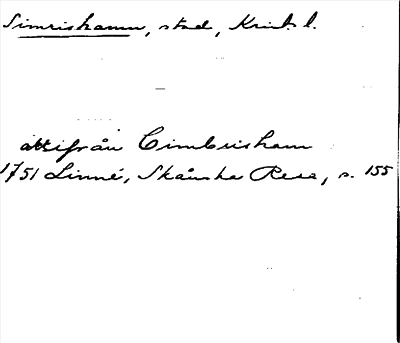 Simrishamn, stad, Krist. l.
attifrån Cimbrisham
1751 Linné, Skånska Resa, s. 155